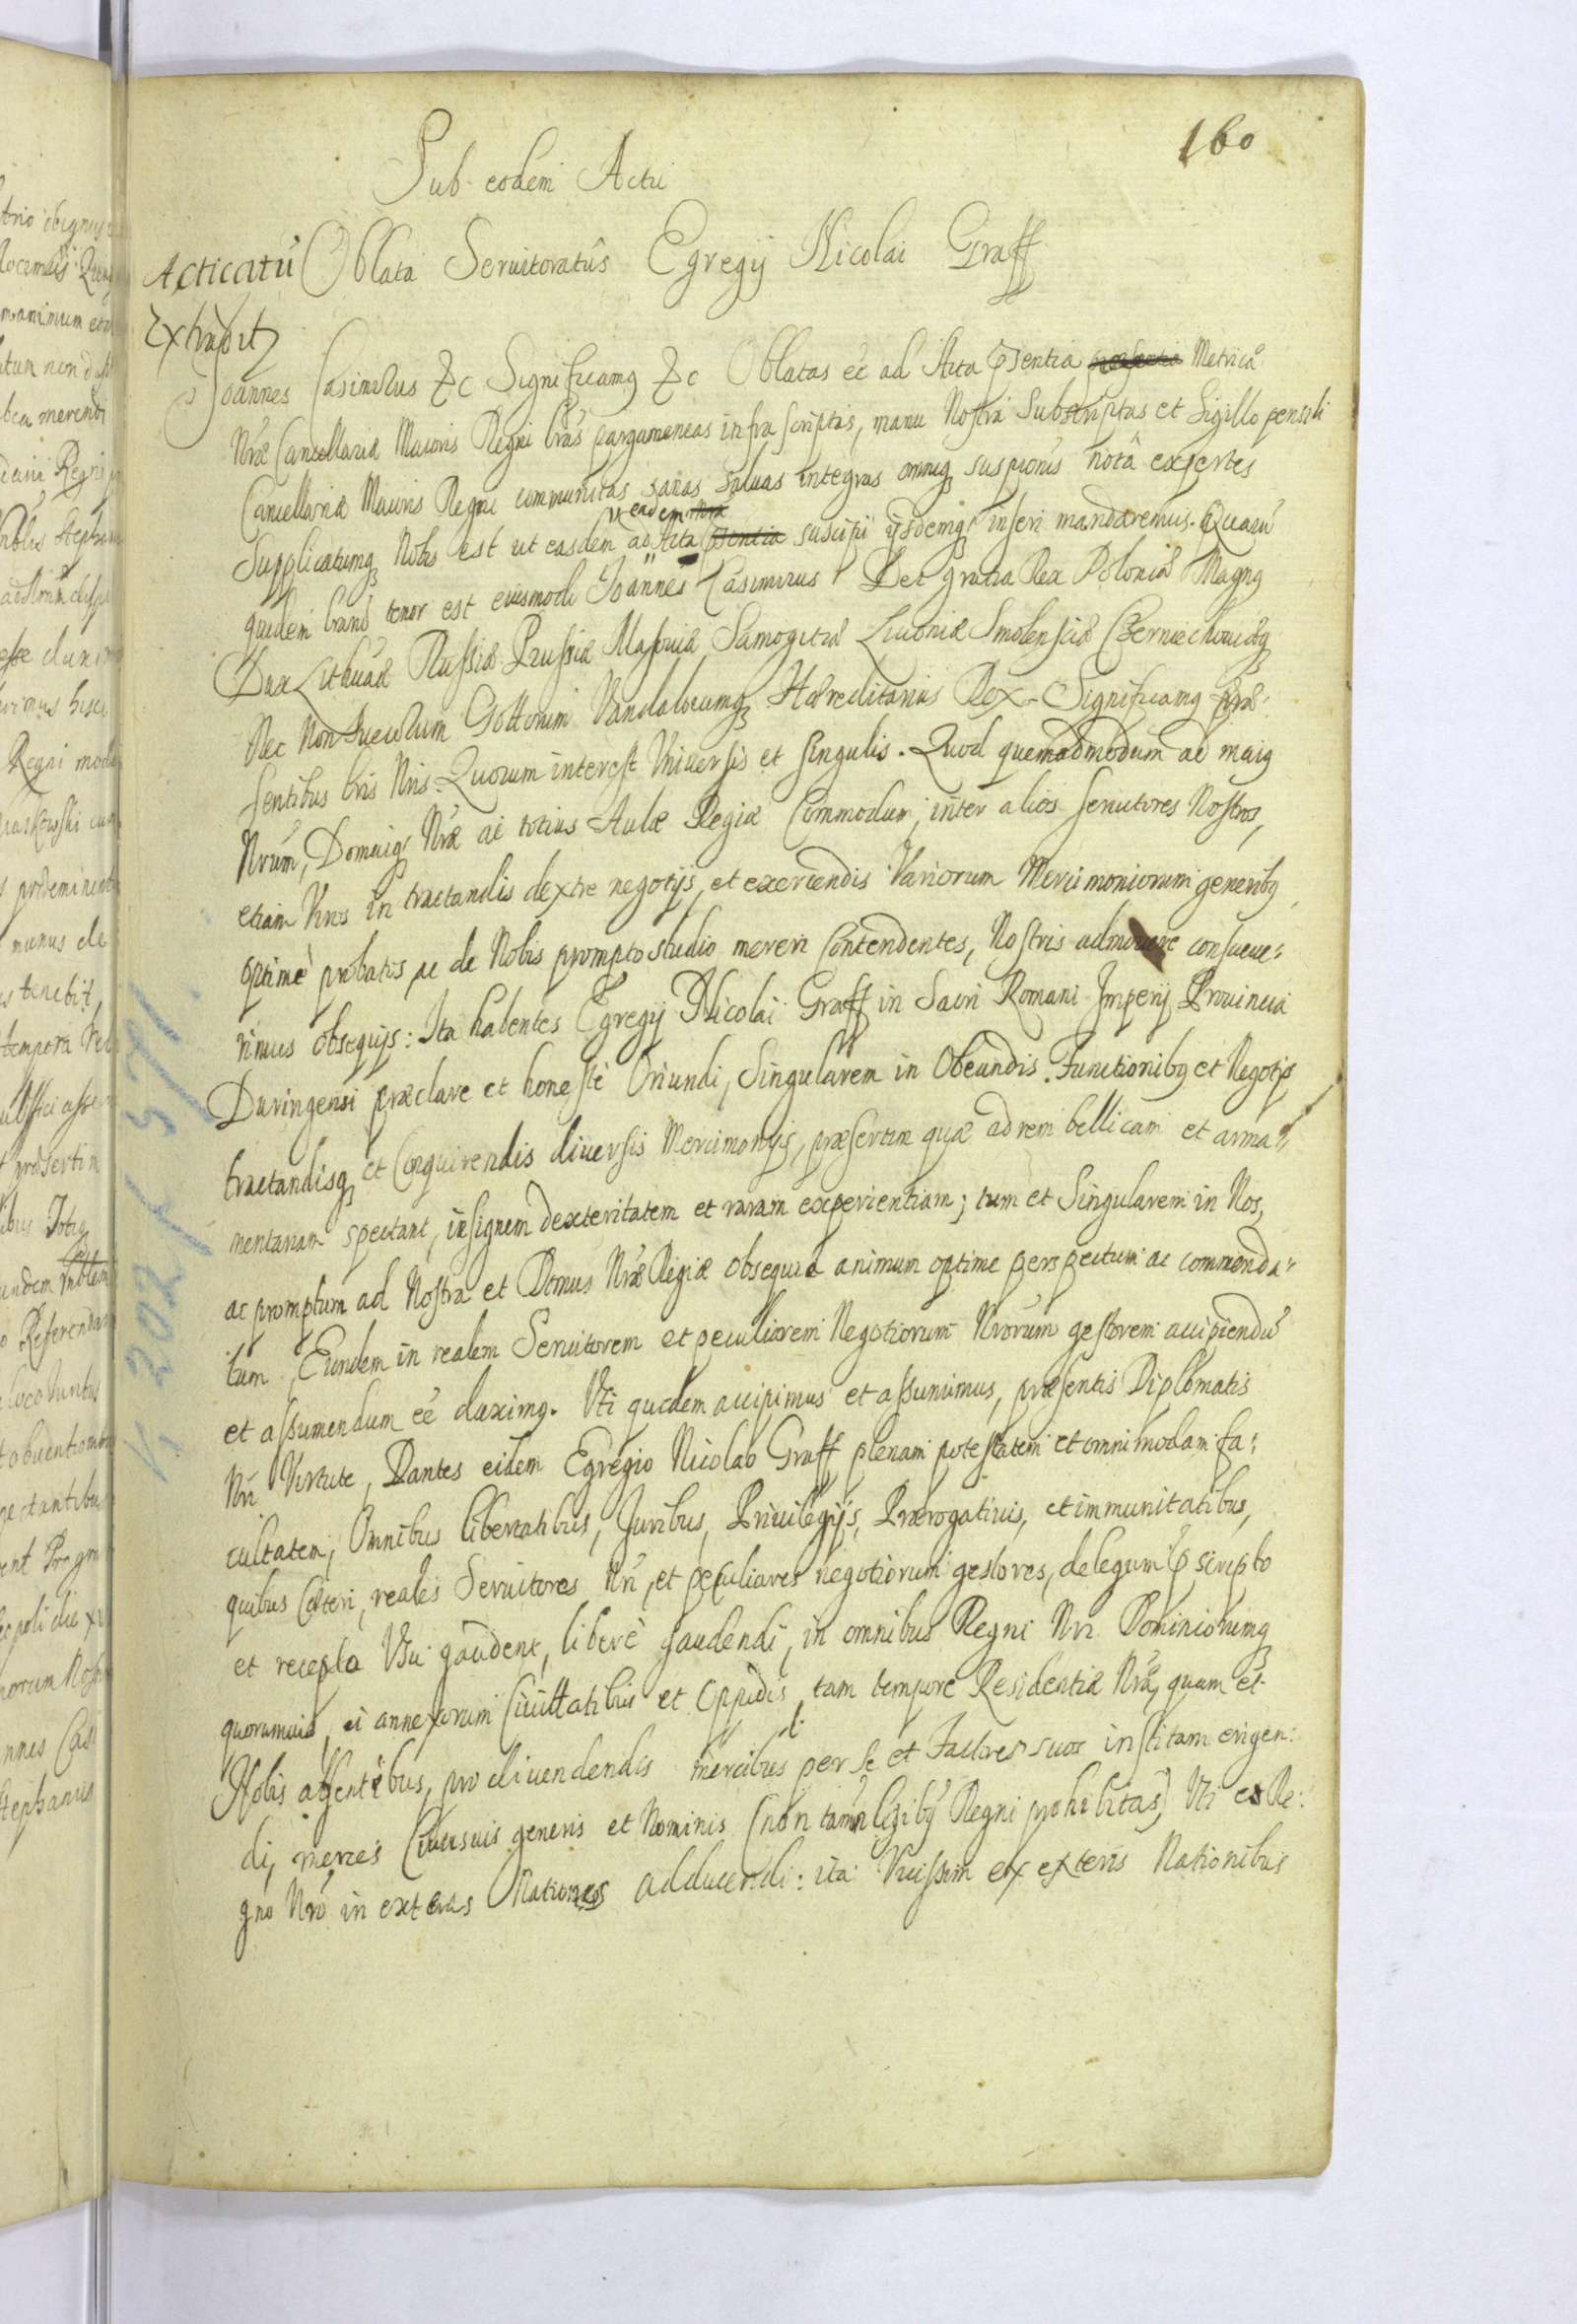 160
Sub eodem Actu
Acticatũ Oblata Seruitoratûs Egregij Nicolai Graff
Extradit
Joannes Casimirus &c Significamq &c Oblatas eẽ ad Acta pſentia Metricæ
Nr̃æ Cancellariæ Maioris Regni lr̃as pargameneas infra ſcriptas, manu Noſtra Subscriptas et Sigillo pensili
Cancellariæ Maioris Regni communitas sanas saluas integras omnig suspionis notâ expertes
Supplicatumq Nobis est ut easdem ad eadem Acta suscipi ijsdemq inſeri mandaremus. Quarũ
quidem lr̃arũ tenor est eiusmodi Joannes Casimirus Dei gratia Rex Poloniæ Magnq
Dux Lithuãæ Ruſsiæ Pruſsiæ Maſouiæ Samogitiæ Liuoniæ Smolenſciæ Czerniechouiæq
Nec Non Suecorum Gottorum Vandalorumq Hæreditarius Rex. Significamq præ-
ſentibus lr̃is Nr̃is Quorum intereſt Vniuerſis et ſingulis. Quod quemadmodum ad maiq
Nrũm, Domuiq Nr̃æ ac totius Aulæ Regiæ Commodum, inter alios ſeruitores Noſtros,
etiam Viros in tractandis dextre negotijs, et exercendis Variorum Mercimoniorum generibq
optimè probatos ac de Nobis prompto studio mereri Contendentes, Noſtris admouere conſueue-
rimus obsequijs: Ita habentes Egregij Nicolai Graff in Sacri Romani Imperij Prouincia
Duringensi præclare et honeſtè Oriundi, Singularem in Obeundis Functionibq et Negotijs
tractandisq et Conquirendis diuerſis Mercimonijs, præſertim quæ ad rem bellicam et arma-
mentariam spectant, inſignem dexteritatem et raram experientiam; tum et Singularem in Nos,
ac promptum ad Noſtra et Domus Nr̃æ Regiæ obsequia animum optime perspectum ac commenda-
tum, Eundem in realem Seruitorem et peculiarem Negotiorum Nr̃orum geſtorem accipiendũ
et aſsumendum eẽ duximq. Vti quidem accipimus et aſsumimus, præſentis Diplomatis
Nr̃i Virtute, Dantes eidem Egregio Nicolao Graff plenam poteſtatem et omnimodam fa-
cultatem, Omnibus libertatibus, Juribus, Priuilegijs, Prærogatiuis, et immunitatibus,
quibus Cæteri, reales Seruitores Nr̃i, et peculiares negotiorum gestores, de legum pſcripto
et recepto Vsu gaudent, liberè gaudendi, in omnibus Regni Nr̃i Dominiorumq
quorumuis, ei annexorum Ciuitatibus et Oppidis tam tempore Residentiæ Nr̃æ, quam et
Nobis absentibus, pro diuendendis mercibus per ſe et Factores suos inſtitam erigen-
di, merces Cuiusuis generis et Nominis (non tamẽn legibq Regni prohibitas) Vti ex Re-
gno Nr̃o in exteras Nationes adducendi: ita Viciſsim ex exteris Nationibus